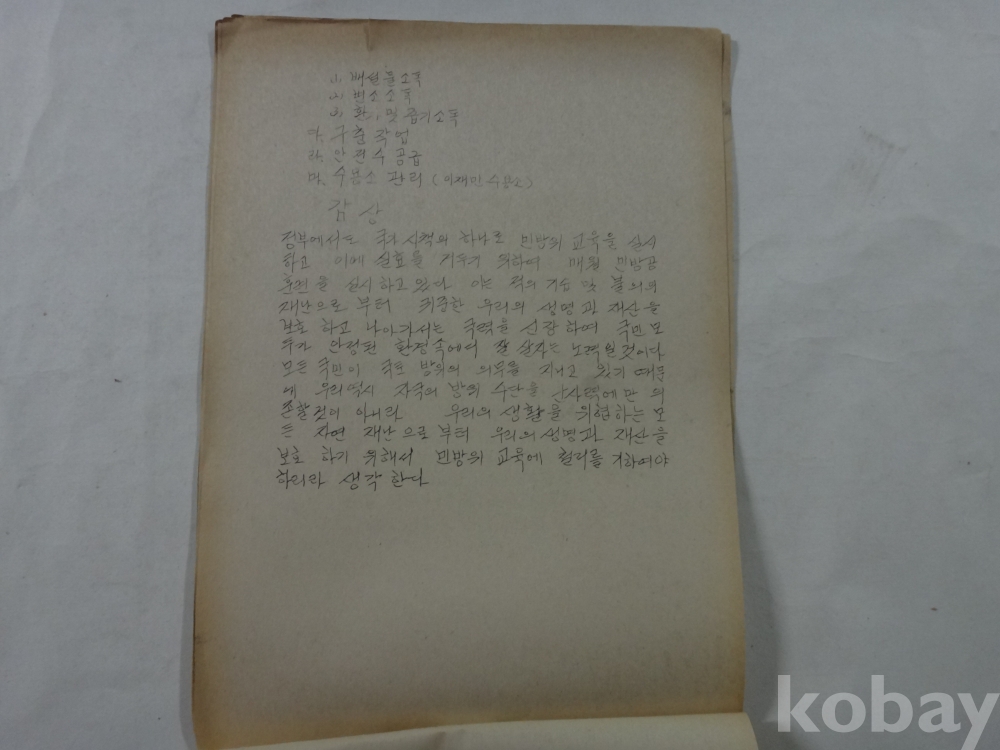 1). 배설물소독
2). 변소소독
3) 환기 및 공기소독
다. 구충작업
라. 안전수 공급
마. 수용소 관리 (이재민 수용소)
감상
정부에서는 국가 시책의 하나로 민방위 교육을 실시
하고 이에 실효를 거두기 위하여 매월 민방공
훈련을 실시하고 있다 이는 적의 기습 및 불의의
재난으로 부터 귀중한 우리의 생명과 재산을
보호 하고 나아가서는 국력을 신장하여 국민 모
두가 안정된 환경속에서 잘 살자는 노력일 것이다
모든 국민이 국토 방위의 의무를 지니고 있기 때문
에 우리 역시 자국의 방위 수단을 군사력에만 의
존할것이 아니라 우리의 생활을 위협하는 모
든 자연 재난으로 부터 우리의 생명과 재산을
보호 하기 위해서 민방위 교육에 기하여야
하리라 생각 한다
kobay